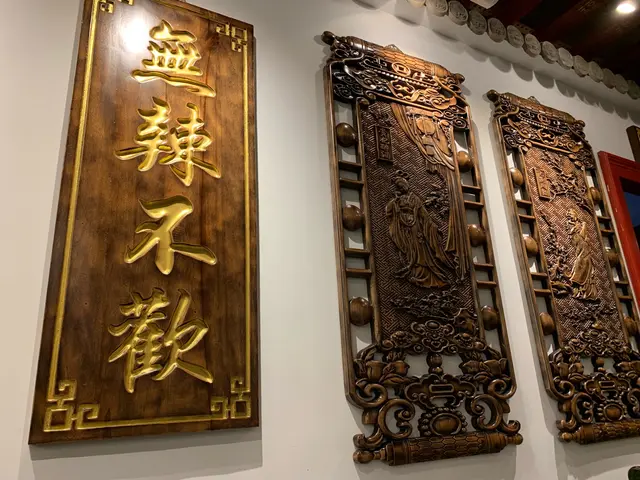 無辣不歡